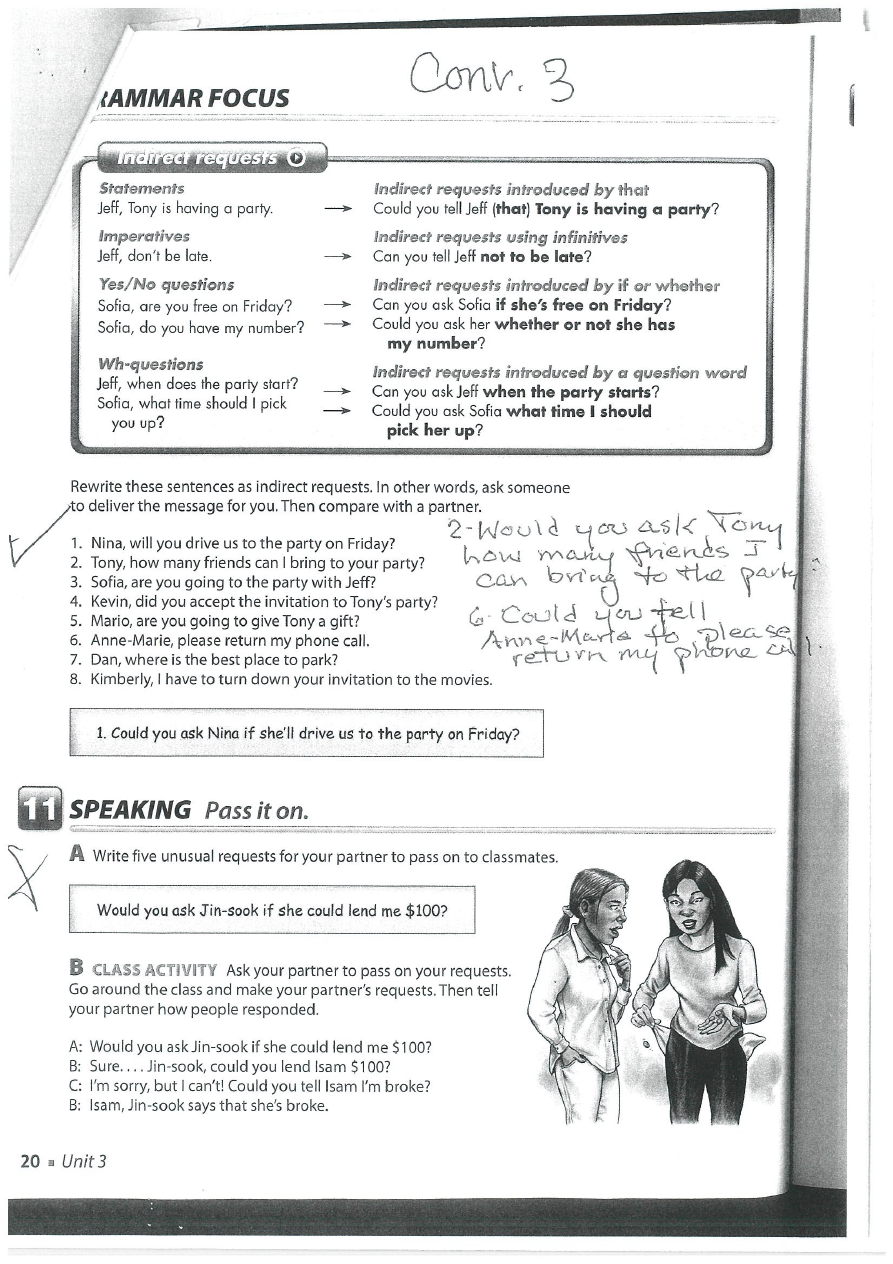 Conv. 3
RAMMAR FOCUS
Indirect requests
Statements
Jeff, Tony is having a party.
Indirect requests introduced by that
Could you tell Jeff (that) Tony is having a party?
Imperatives
Jeff, don't be late.
Indirect requests using infinitives
Can you tell Jeff not to be late?
Yes/No questions
Sofia, are you free on Friday?
Sofia, do you have my number?
Indirect requests introduced by if or whether
Can you ask Sofia if she's free on Friday?
Could you ask her whether or not she has
my number?
Wh-questions
Jeff, when does the party start?
Sofia, what time should I pick
you up?
Indirect requests introduced by a question word
Can you ask Jeff when the party starts?
Could you ask Sofia what time I should
pick her up?
Rewrite these sentences as indirect requests. In other words, ask someone
to deliver the message for you. Then compare with a partner.
1. Nina, will you drive us to the party on Friday?
2. Tony, how many friends can I bring to your party?
3. Sofia, are you going to the party with Jeff?
4. Kevin, did you accept the invitation to Tony's party?
5. Mario, are you going to give Tony a gift?
6. Anne-Marie, please return my phone call.
7. Dan, where is the best place to park?
8. Kimberly, I have to turn down your invitation to the movies.
2-Would you ask Tony
how many friends I
can bring to the party?
6- Could you tell
Anne-Marta to please
return my phone call.
1. Could you ask Nina if she'll drive us to the party on Friday?
11 SPEAKING Pass it on.
A Write five unusual requests for your partner to pass on to classmates.
Would you ask Jin-sook if she could lend me $100?
B CLASS ACTIVITY Ask your partner to pass on your requests.
Go around the class and make your partner's requests. Then tell
your partner how people responded.
A: Would you ask Jin-sook if she could lend me $100?
B: Sure. . . . Jin-sook, could you lend Isam $100?
C: I'm sorry, but I can't! Could you tell Isam I'm broke?
B: Isam, Jin-sook says that she's broke.
20 ■ Unit 3